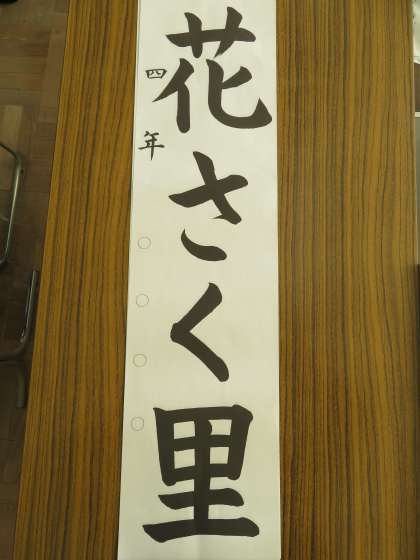 花さく里
四年○○○○